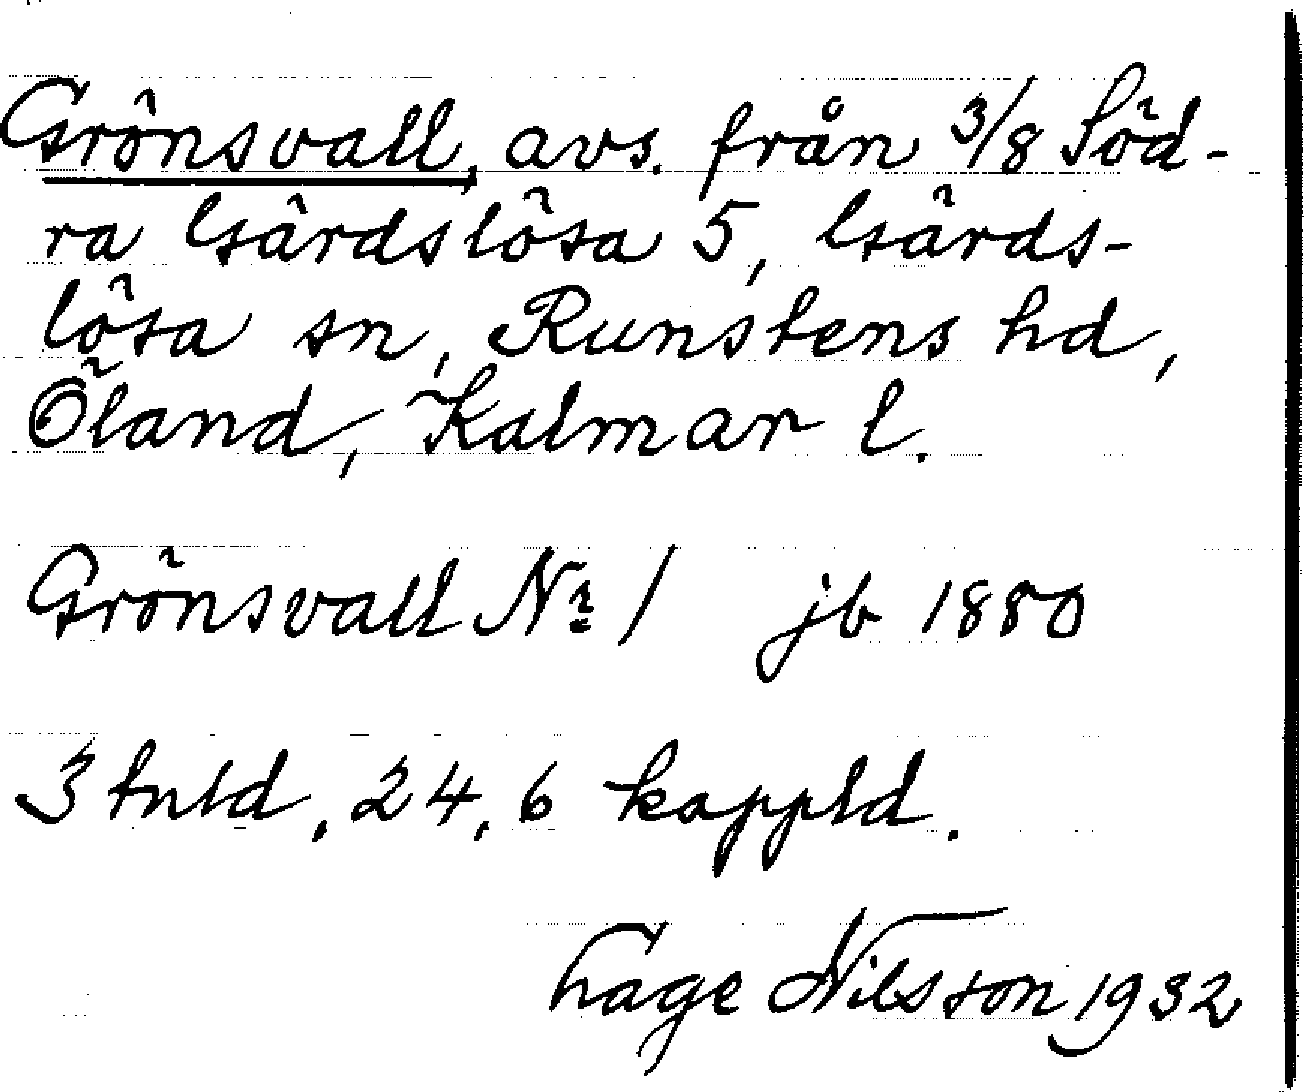 Grönsvall, avs. från 3/8 Söd-
ra Gärdslösa 5, Gärds-
lösa sn, Runstens hd,
Öland, Kalmar l.
Grönsvall No 1 jb 1880
3 tnld, 24,6 kappld.
Tage Nilsson 1932